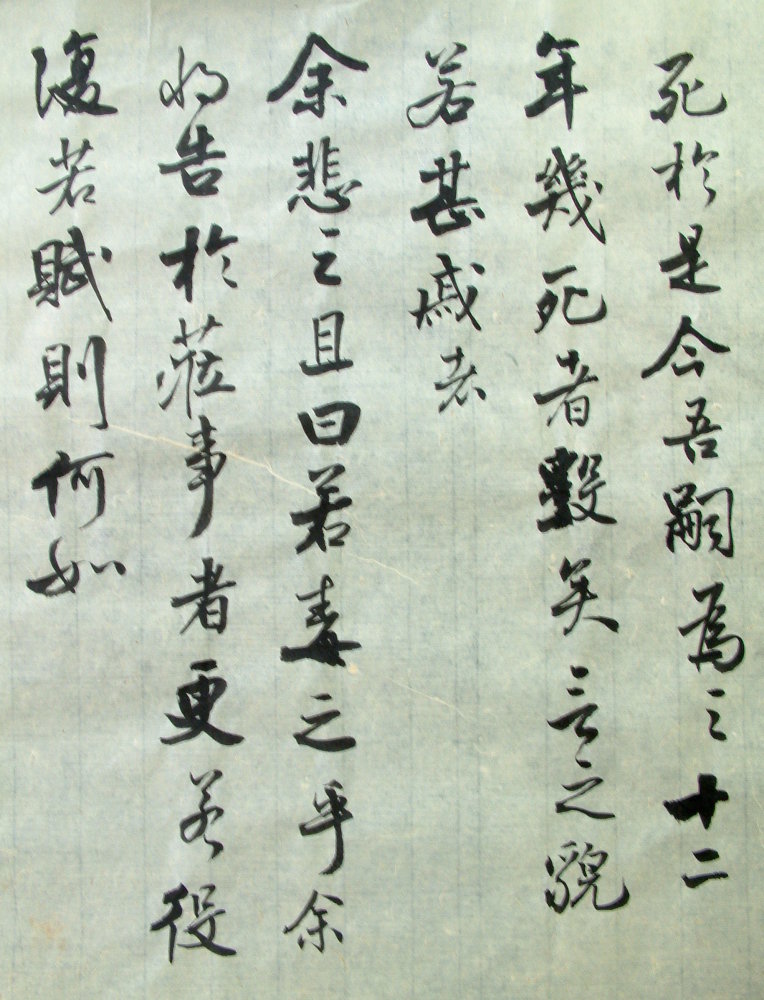 死於是今吾嗣為之十二
年幾死者數矣言之貌
若甚慼者
余悲之且曰若毒之乎余
將告於蒞事者更若役
復若賦則何如